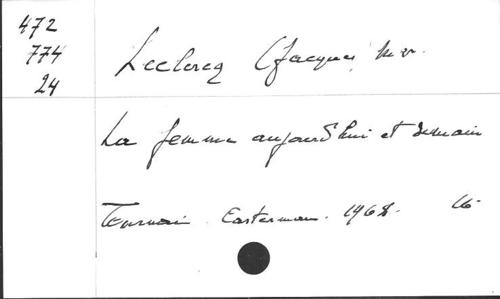 472
774
24
Leclercq (Jacques) Mgr.
La femme aujourd'hui et demain
Tournai. Casterman. 1968. 16-